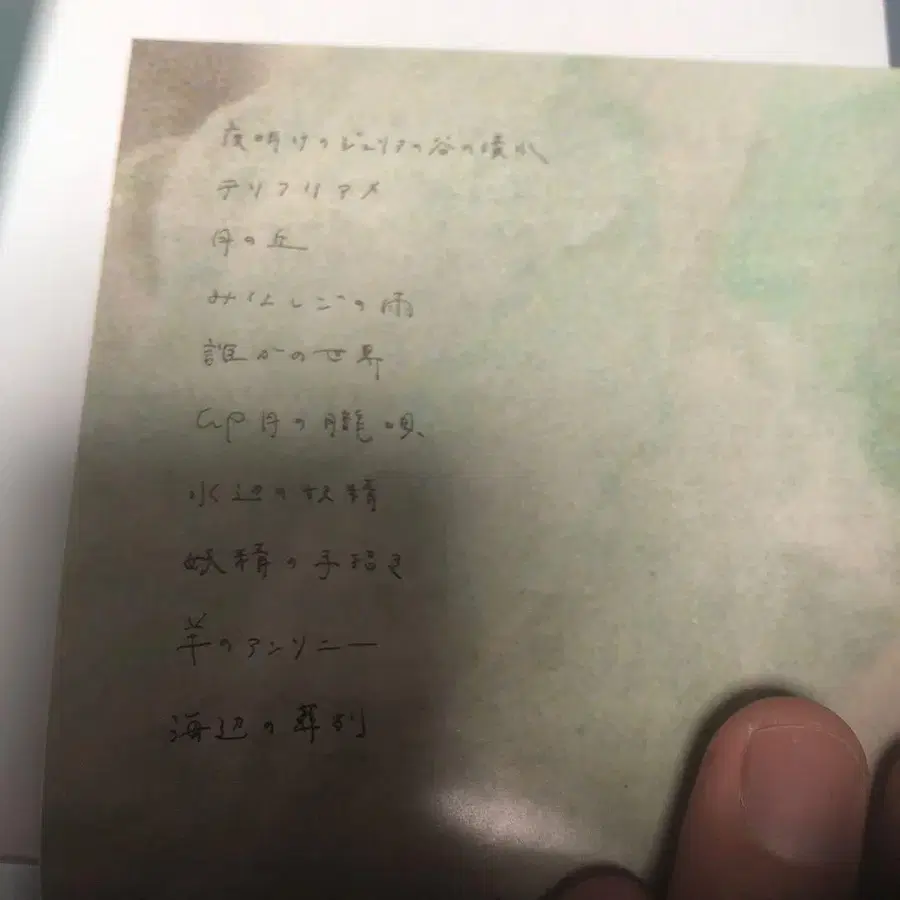 夜明けのジュリアの谷の墳水
テリフリアメ
月の丘
みなしごの雨
誰かの世界
月の朧唄
水辺の妖精
妖精の手招き
羊のアンソニー
海辺の葬列